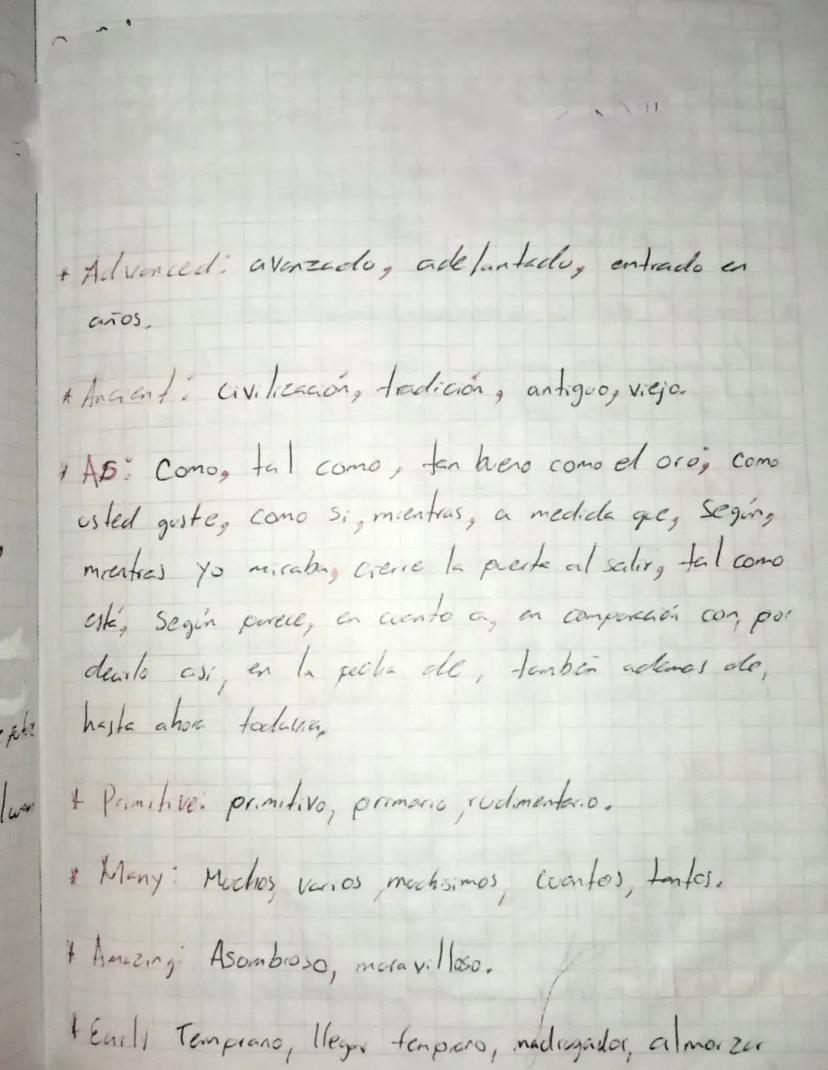 * Advanced: avanzado, adelantado, entrado en
años.
* Ancient: civilización, tradición, antiguo, viejo.
* As: Como, tal como, tan bueno como el oro, como
usted guste, como si, mientras, a medida que, Según,
mientras yo miraba, cierre la puerta al salir, tal como
está, Según parece, en cuanto a, en comparación con, por
decirlo así, en la fecha de, también ademas de,
hasta ahora todavia,
* Primitive: primitivo, primario, rudimentario.
* Many: Muchos, varios, muchsimos, cuantos, tantos.
* Amazing: Asombroso, maravilloso.
* Early Temprano, llegar temprano, madrugador, almorzar